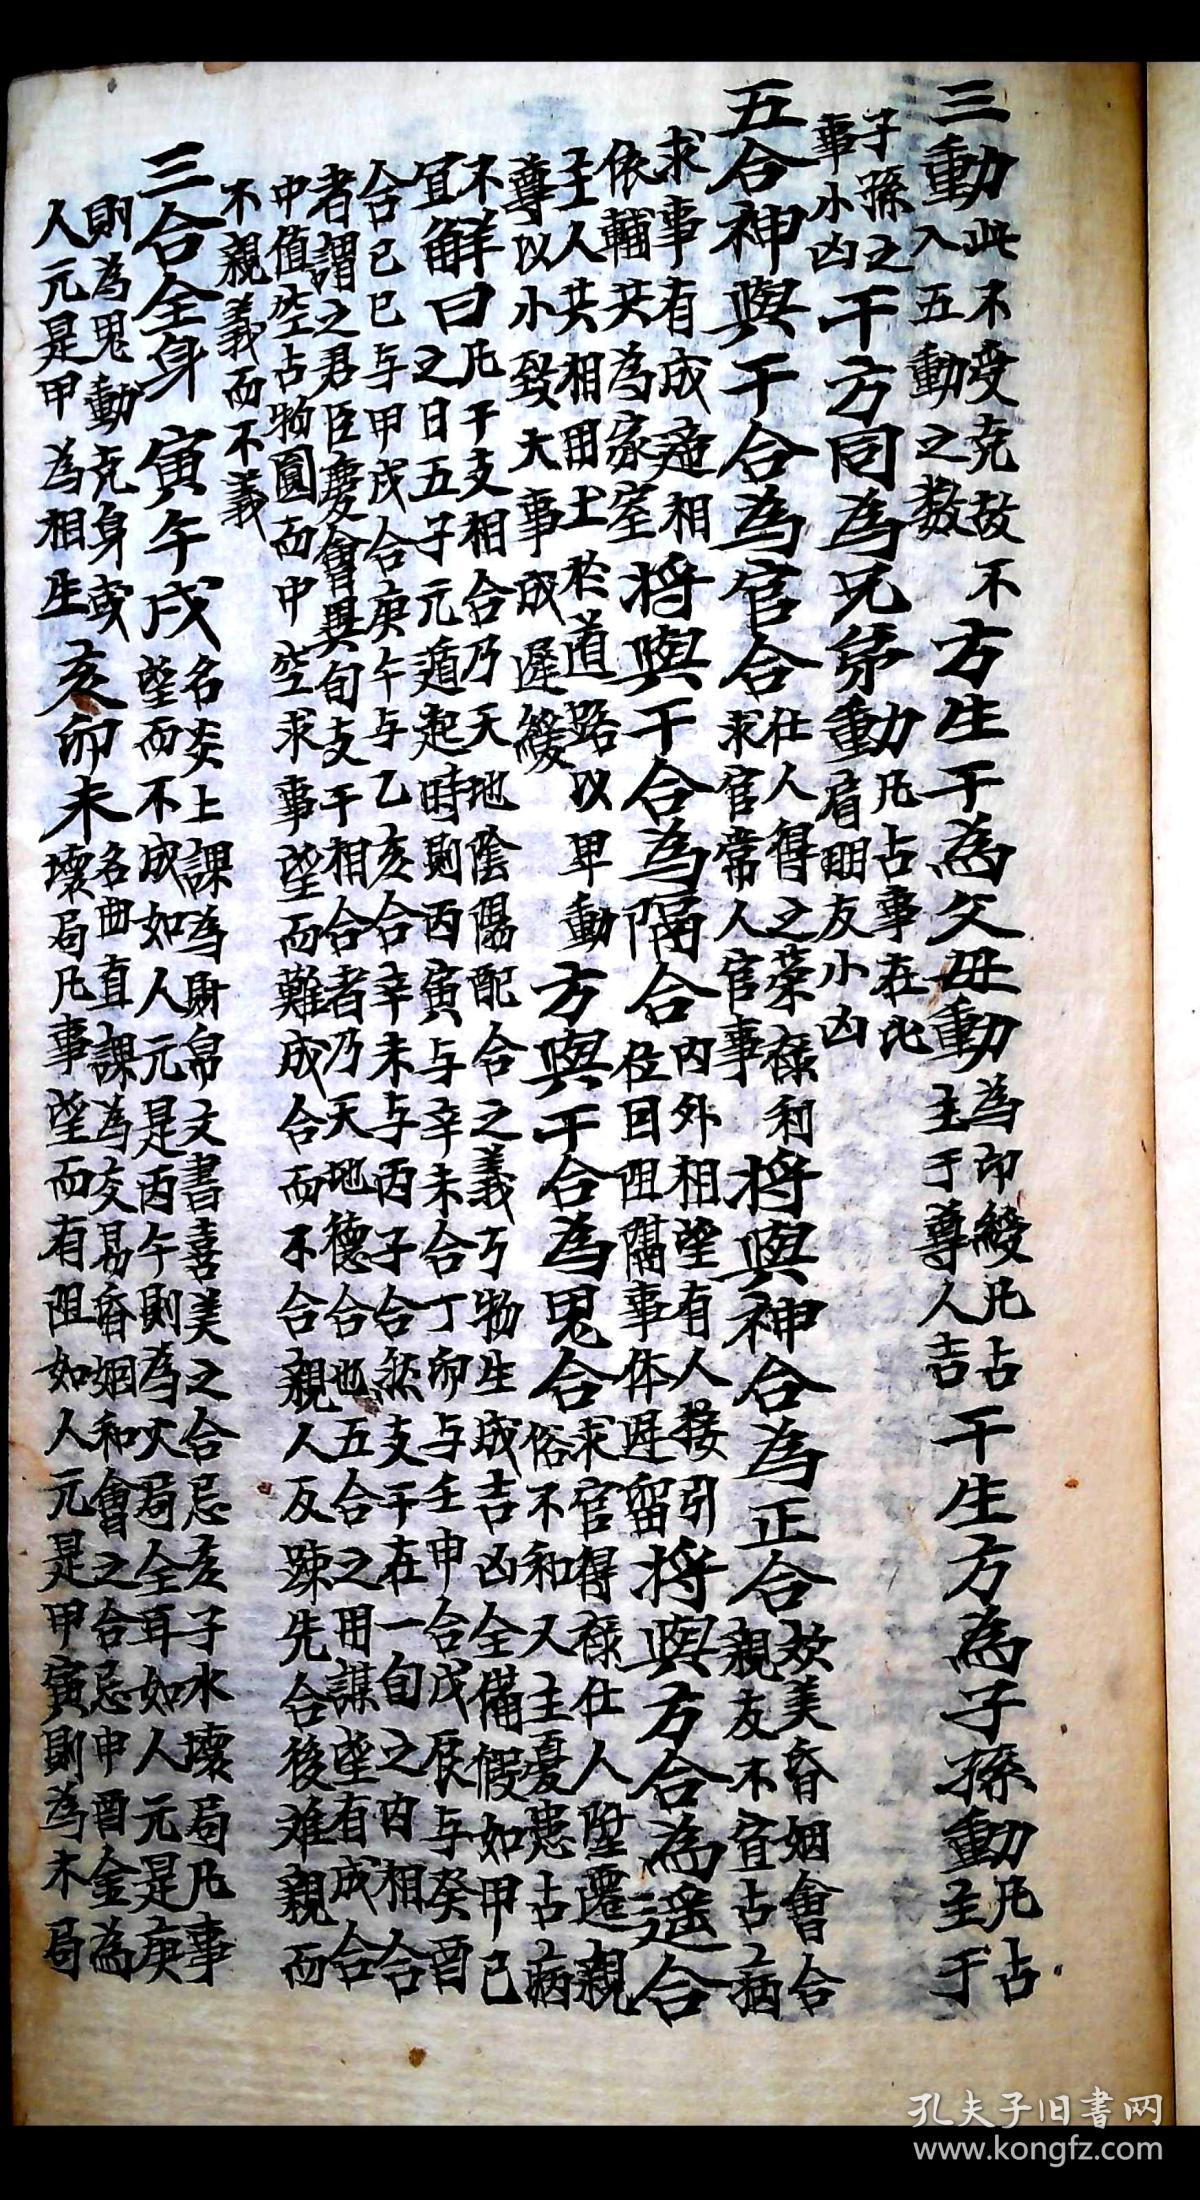 三動此不受克故不入五動之数　方生干為父母動為印綬凡占主于尊人吉　干生方為子孫動凡占主于
子孫之事小凶　干方同為兄弟動凡占事在比肩朋友小凶
五合　神與干合為官合仕人得之荣禄利求官常人官事　將與神合為正合姣美昏姻會合親友不宜占病
求事有成　將與干合為隔合内外相望有人接引位因阻隔事体遲留　將與方合為遥合
相依輔共為家室
子主人共相田土於道路以卑動尊以小致大事成遲緩　方與干合為鬼合求官得禄仕人陞遷親俗不和又主憂患占病
不宜　解曰凡干支相合乃天地陰陽配合之義万物生成吉凶全備假如甲己
之日五子元遁起時則丙寅与辛未合丁卯与壬申合戊辰与癸酉
合己巳与甲戌合庚午与乙亥合辛未与丙子合然支干在一旬之内相合
者謂之君臣慶會異旬支干相合者乃天地德合也五合之用謀望有成合
中值空占物圓而中空求事望而難成合而不合親人反踈先合後难親而
不親義而不義
三合全身　寅午戌名炎上課為財帛文書喜美之合忌亥子水壞局凡事
望而不成如人元是丙午則為火局全耳如人元是庚
則為鬼動克身
人元是甲為相生　亥卯未名曲直課為交易昏姻和會之合忌申酉金為
壞局凡事望而有阻如人元是甲寅則為木局
孔夫子旧書网
www.kongfz.com